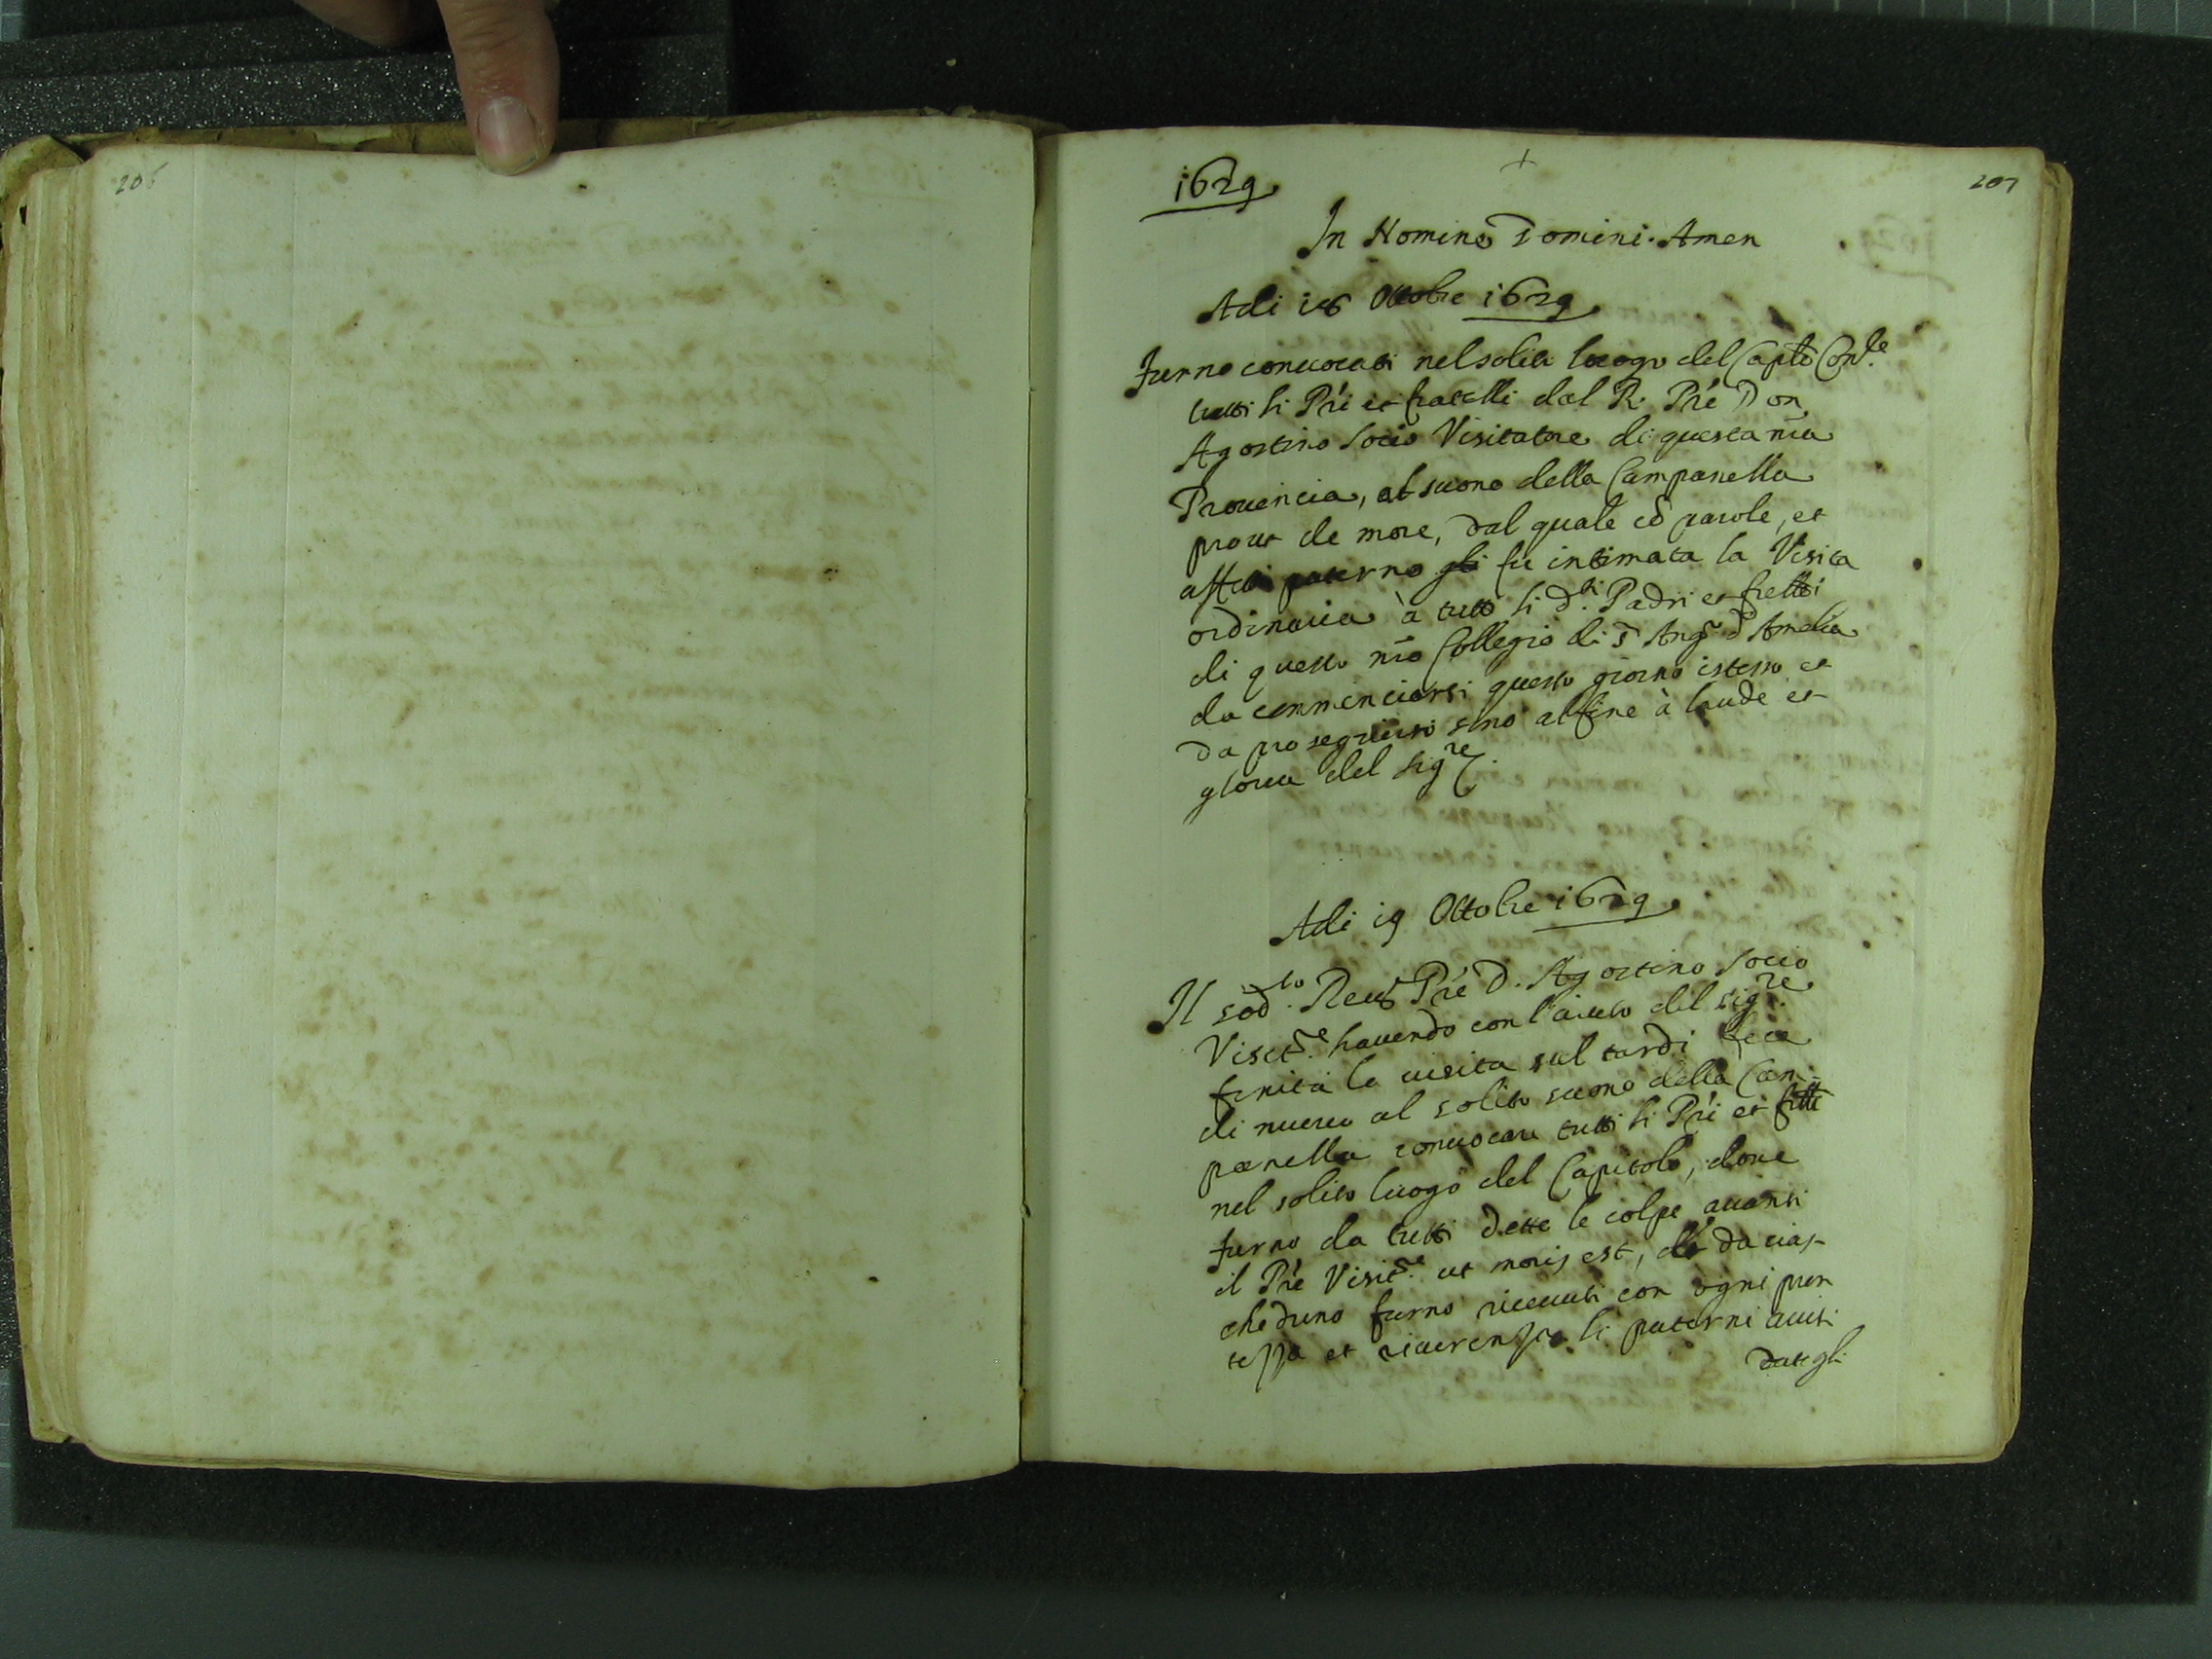 206
207
1629
+
In Nomine Domini. Amen
Adi 18 Ottobre 1629
Furno conuocati nel solito luogo del Capto
tutti li Prī et fratelli dal R. Prē Don
Agostino Socio Visitatore di questa nrā
Prouincia, al suono della Campanella
prout de more, dal quale cō parole, et
paterno gli fu intimata la Visita
ordinaria à tutti li d.ti Padri et frelli
di questo nrō Collegio di S Ang.º d'Amelia
da comminciarsi questo giorno istesso et
da proseguirsi sino al fine à laude et
gloria del Sig.re
Adi 19 Ottobre 1629
Il sod.to Reu. Prē D. Agostino Socio
Visit.re hauendo con l'aiuto del Sig.re
finita la uisita sul tardi fece
di nuouo al solito suono della Cam=
panella conuocare tutti li Prī et frlli
nel solito luogo del Capitolo, doue
furno da tutti dette le colpe auanti
il Prē Visit.re ut moris est, et da cias-
cheduno furno riceuuti con ogni pron
tezza et riuerenza li paterni auisi
datigli